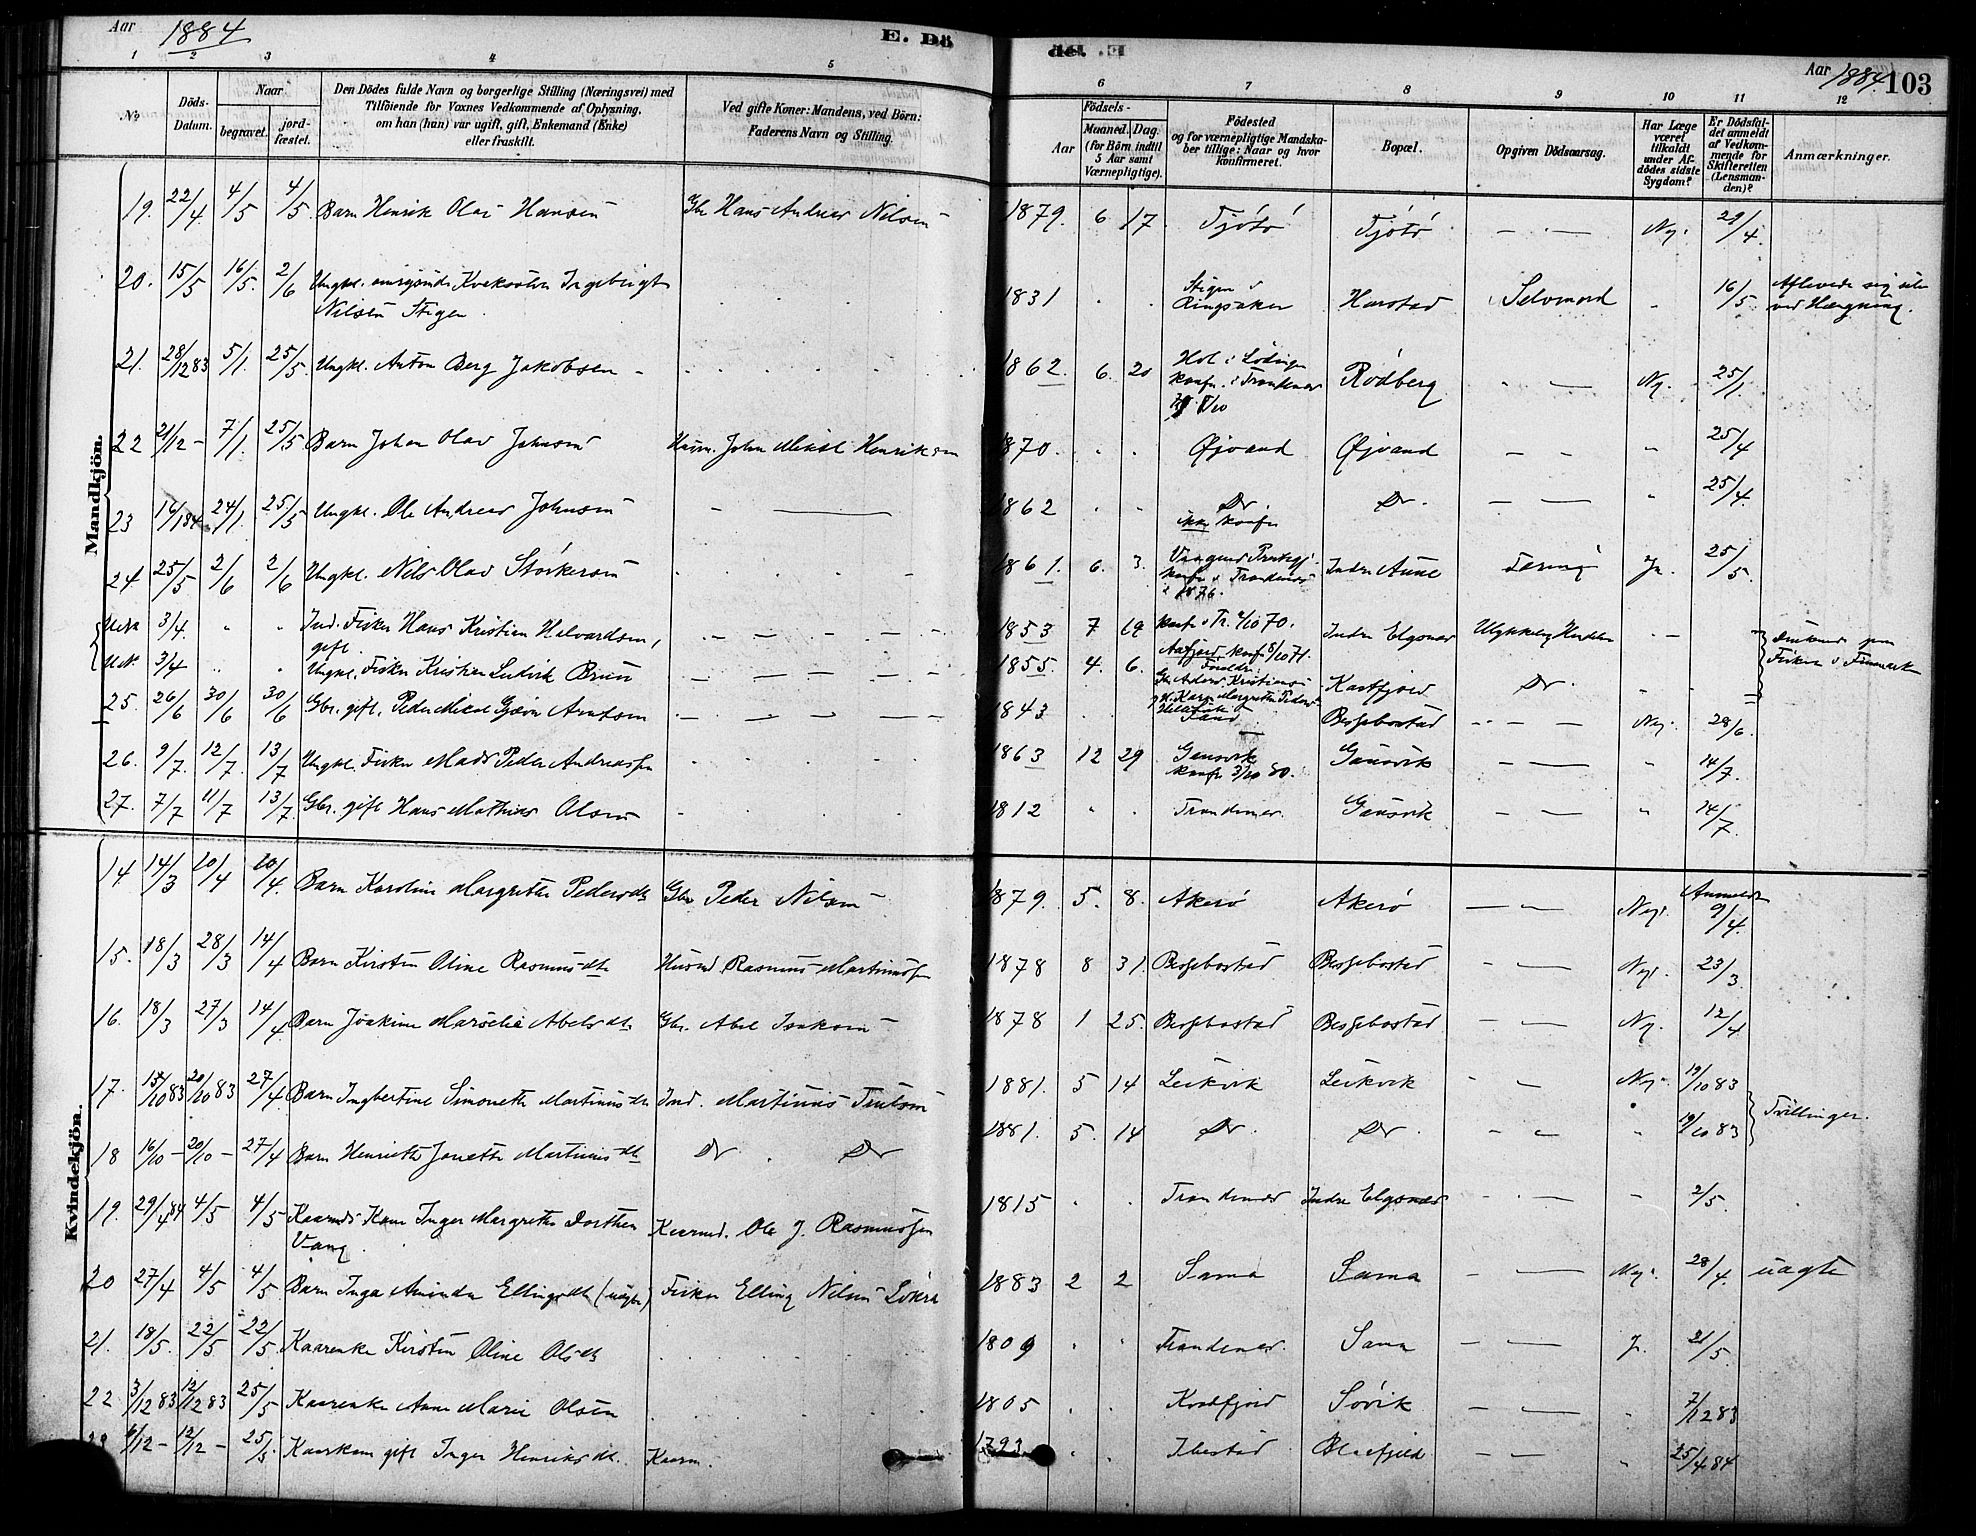 Aar 1884
E. Dö
1 2 3 4 5
No
Döds-Datum.
Naar
begravet.
jord-fæstet.
Den Dödes fulde Navn og borgerlige Stilling (Næringsvei) med
Tilföiende for Voxnes Vedkommende af Oplysning,
om han (hun) var ugift, gift, Enkemand (Enke)
eller fraskilt.
Ved gifte Koner: Mandens, ved Börn:
Faderens Navn og Stilling.
de. E
Aar 1884. 103
6 7 8 9 10 11 12
Födsels-
Aar
Maaned. Dag.
(for Börn indtil
5 Aar samt
Værnepligtige).
Födested
og for værnepligtige Mandska-
ber tillige: Naar og hvor
konfirmeret.
Bopæl.
Opgiven Dödsaarsag.
Har Læge
været
tilkaldt
under Af-
dödes sidste
Sygdom?
Er Dödsfal-
det anmeldt
af Vedkom-
mende for
Skifteretten
(Lensman-
den)?
Anmærkninger.
Mandkjön.
19. 22/4 4/5 4/5 Barn Henrik Olai Hansen Gbr Hans Andreas Nilsen 1879. 6 17. Fjötö Fjötö — — Nej. 29/4.
20. 15/5 16/5. 2/6 Ungkl. Ingebrigt 1831 Stigen i Ringsaker Harstad Selvmord 16/5. Aflivede sig selv
Nilsen Stigen ved Hængning.
21. 28/12 83 5/1. 25/5. Ungkl. Anton Berg Jakobsen 1862. 6. 20 Hol i Lödingen konfr. i Trondenes Rödberg — Nej. 25/1.
22 21/12 - 7/1. 25/5 Barn Johan Olav Johnsen Husm. John Mikal Henriksen 1870. Øjvand Øjvand — — 25/4
23 16/1 84 24/1. 25/5 Ungkl. Ole Andreas Johnsen 1862 Do. ikke konfr Do. — — 25/4.
24 25/5 2/6 2/6 Ungkl. Nils Olav Störkersen 1861. 6. 3. konfr i Trondenes 1876. Indre Aune Tæring Ja. 25/5
U.N. 3/4. Ind. Fisker Hans Kristian Halvardsen, 1853 7 19 konfr i Tr. 70. Indre Elgsnes Ulykkelig Hændelse
gift.
U.N. 3/4 Ungkl. Fisker Kristian Ludvik Bruun 1855. 4. 6. Aafjord konfr 8/10 71. Kastfjord Do. Druknede paa
Fiskeri i Finmarken
25. 26/6 30/6 30/6 Gbr. gift. Peder Mikal Gjæver Arntsen 1843 Sand Bessebostad — — Nej. 28/6.
26. 9/7. 12/7. 13/7 Ungkl. Fisker Mads Peder Andreassen 1863 12 29 Gausvik konfr 3/10 80. Gausvik — — 14/7.
27. 7/7 11/7 13/7 Gbr. gift Hans Mathias Olsen 1812 Trondenes Gausvik — — 14/7.
Kvindekjön.
14 14/3 20/4 20/4. Barn Karoline Margrethe Pedersdtr Gbr Peder Nilsen 1879. 5. 8. Akerö Akerö — — Nej. Anmeldt 9/4.
15. 18/3 28/3 14/4 Barn Kirsten Oline Rasmusdtr Husmd Rasmus Martinussen 1878 8 31. Bessebostad Bessebostad — — Nej. 23/3.
16. 18/3 27/3 14/4 Barn Joakime Marselie Abelsdtr Gbr. Abel Isaksen 1878 1 25. Bessebostad Bessebostad — — Nej. 12/4
17. 15/10 83 20/10 83 27/4 Barn Ingbertine Simonette Martinusdtr Ind. Martinus Trulsen 1881. 5 14 Leikvik Leikvik — Nej. 19/10 83
18 16/10 - 20/10 - 27/4 Barn Henriette Janette Martinusdtr Do Do 1881. 5. 14 Do. Do. — 19/10 83 Tvillinger.
19. 29/4 84 4/5 4/5 Kaarmds Kone Inger Margrethe Dorthea Kaarmd. Ole J. Rasmussen 1815 Trondenes Indre Elgsnes 2/5.
Vang.
20 27/4 4/5 4/5 Barn Inga Aminda Ellingsdtr (uægte) Fisker Elling Nilsen 1883 2 2 Sama Sama — — Nej. 28/4. uægte
21. 18/5. 22/5 22/5 Kaarenke Kirsten Oline Olsdtr 1809 Trondenes Sama — — J. 21/5.
22. 3/12 83 12/12 83 25/5 Kaarenke Anne Marie Olsen 1805 Kvedfjord Sövik — — 7/12 83
23 6/12 - 12/12 - 25/5 Kaarkone gift Inger Henriksdtr. Kaarm. 1793 Ibestad Blaafjeld — — 25/4 84